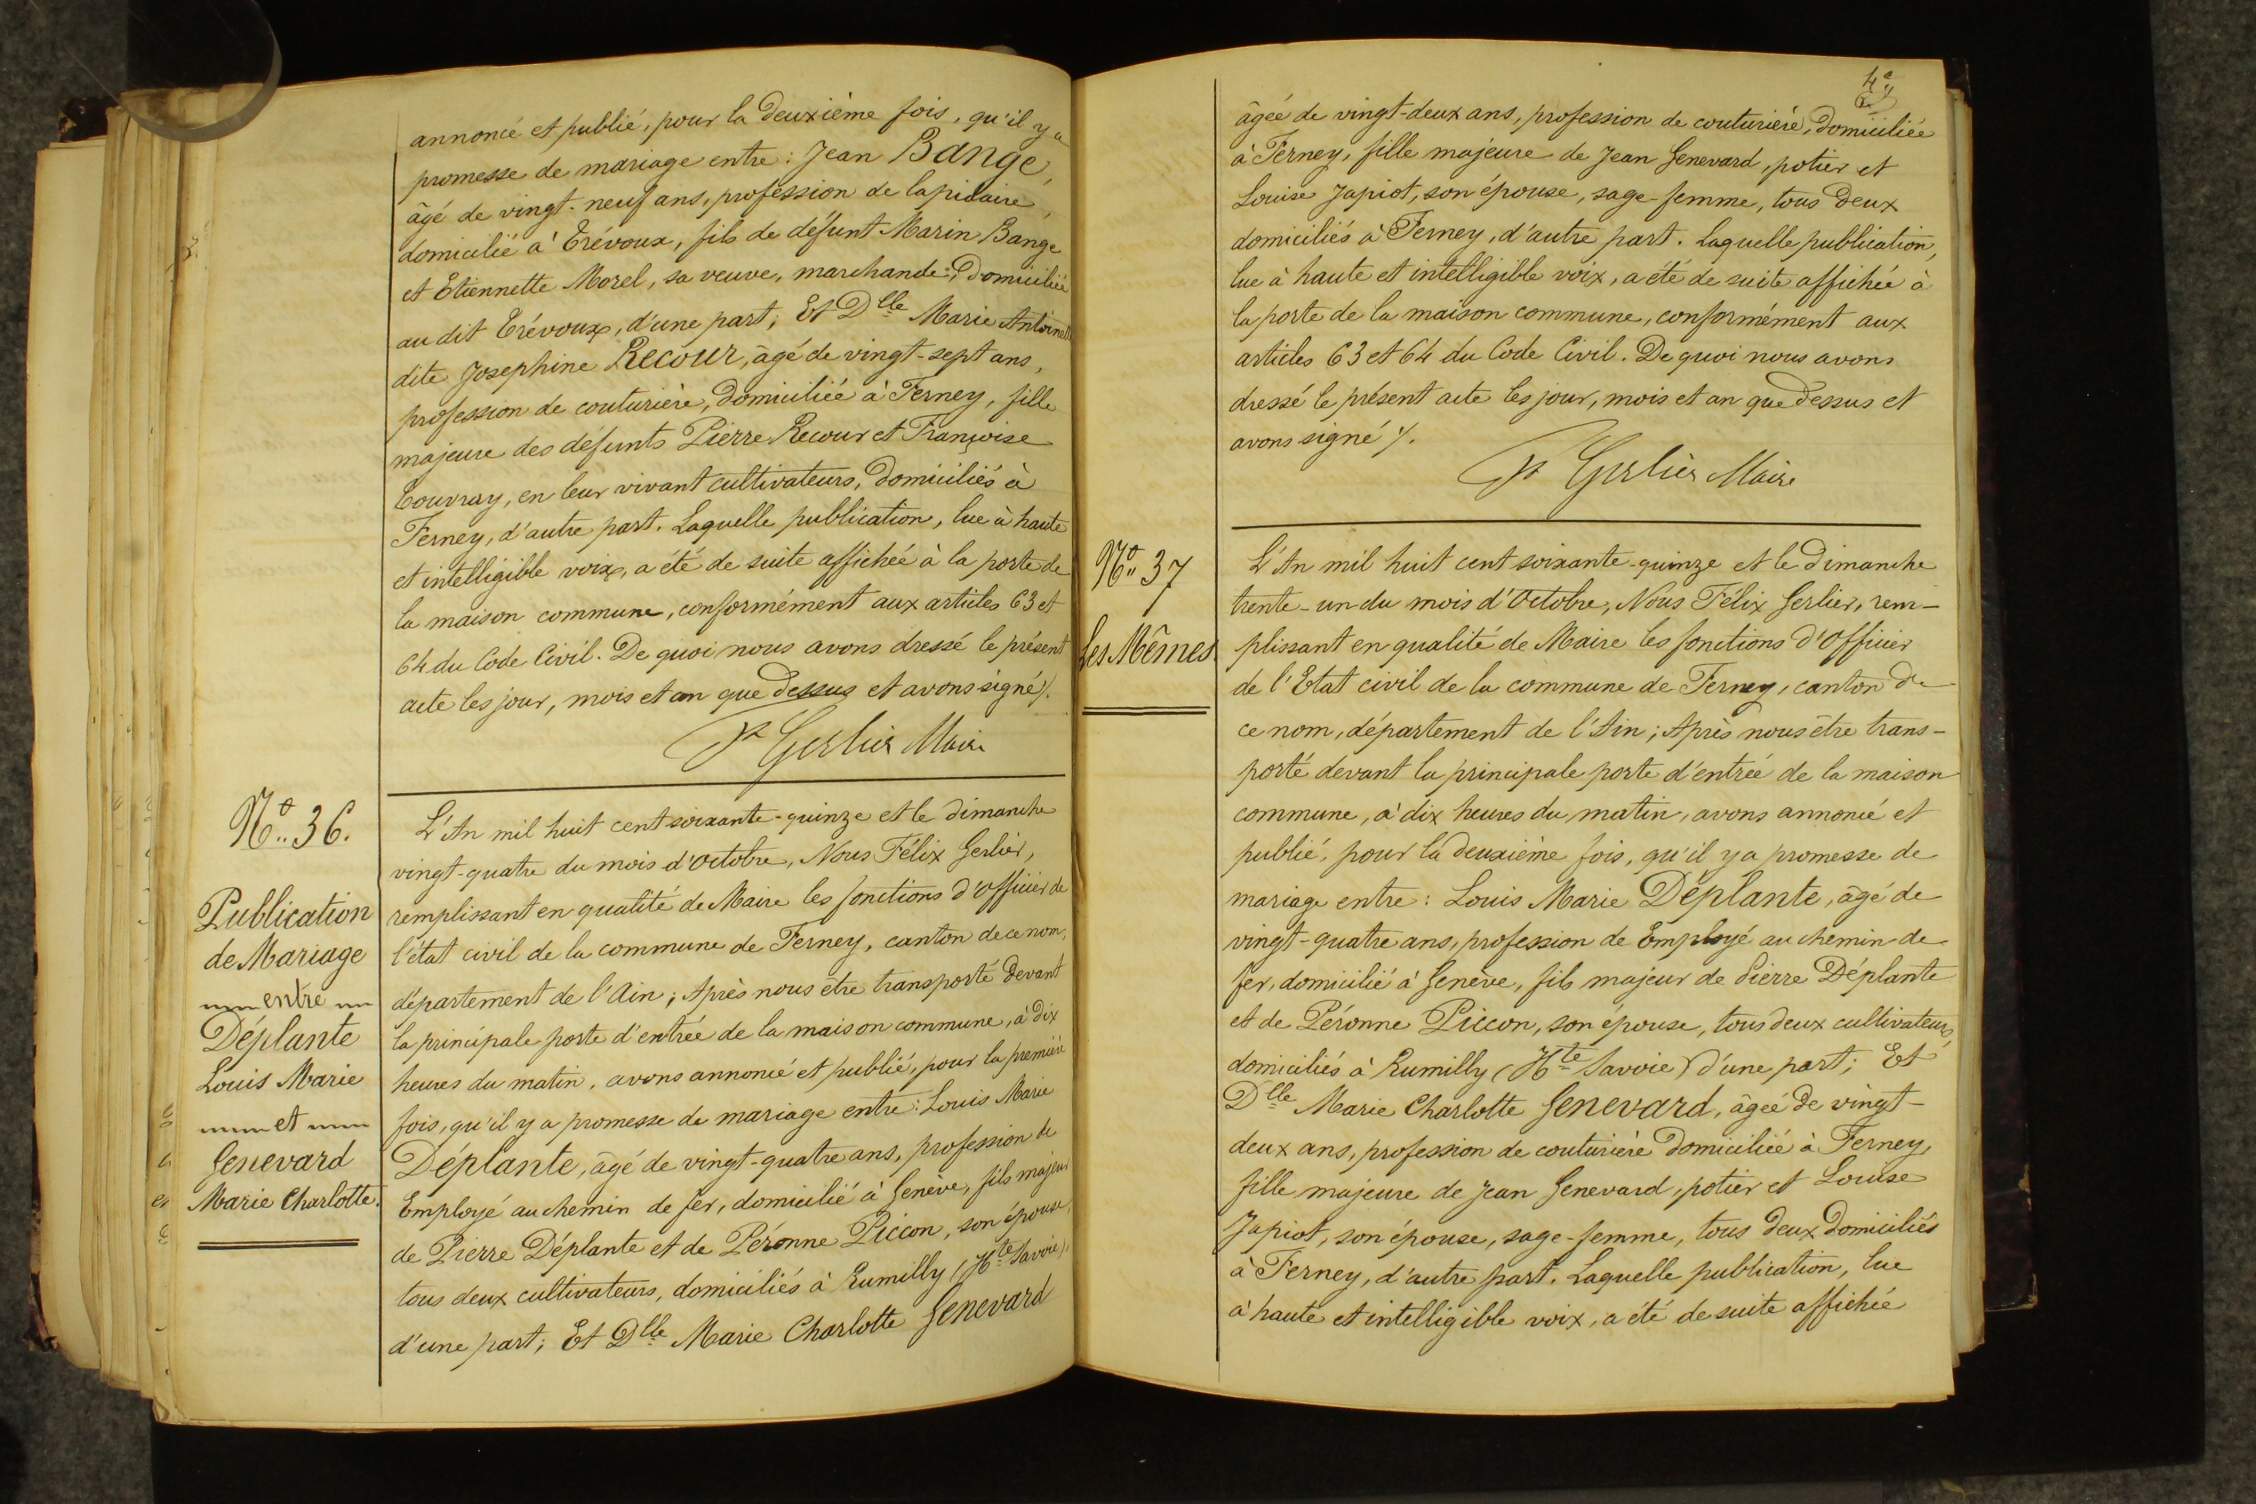 annoncé et publié, pour la deuxième fois, qu'il y a
promesse de mariage entre : Jean Bange,
âgé de vingt-neuf ans, profession de lapidaire,
domicilié à Trévoux, fils de défunt Marin Bange
et Etiennette Morel, sa veuve, marchande, domiciliée
au dit Trévoux, d'une part; Et Dlle Marie Antoinette
dite Josephine Recour, âgé de vingt-sept ans,
profession de couturière, domiciliée à Ferney, fille
majeure des défunts Pierre Recour et Françoise
Couvray, en leur vivant cultivateurs, domiciliés à
Ferney, d'autre part. Laquelle publication, lue à haute
et intelligible voix, a été de suite affichée à la porte de
la maison commune, conformément aux articles 63 et
64 du Code Civil. De quoi nous avons dressé le présent
acte les jour, mois et an que dessus et avons signé /.
Gerlier Maire
No 36.
Publication
de Mariage
entre
Déplante
Louis Marie
et
Genevard
Marie Charlotte.
L'An mil huit cent soixante-quinze et le dimanche
vingt-quatre du mois d'Octobre, Nous Félix Gerlier,
remplissant en qualité de Maire les fonctions d'Officier de
l'état civil de la commune de Ferney, canton de ce nom,
département de l'Ain; Après nous être transporté devant
la principale porte d'entrée de la maison commune, à dix
heures du matin, avons annoncé et publié, pour la première
fois, qu'il y a promesse de mariage entre : Louis Marie
Déplante, âgé de vingt-quatre ans, profession de
Employé au chemin de fer, domicilié à Genève, fils majeur
de Pierre Déplante et de Péronne Piccon, son épouse,
tous deux cultivateurs, domiciliés à Rumilly (Hte Savoie),
d'une part; Et Dlle Marie Charlotte Genevard
âgée de vingt-deux ans, profession de couturière, domiciliée
à Ferney, fille majeure de Jean Genevard, potier et
Louise Japiot, son épouse, sage-femme, tous deux
domiciliés à Ferney, d'autre part. Laquelle publication,
lue à haute et intelligible voix, a été de suite affichée à
la porte de la maison commune, conformément aux
articles 63 et 64 du Code Civil. De quoi nous avons
dressé le présent acte les jour, mois et an que dessus et
avons signé /.
Gerlier Maire
No 37
Les Mêmes.
L'An mil huit cent soixante-quinze et le dimanche
trente-un du mois d'Octobre, Nous Félix Gerlier, rem-
plissant en qualité de Maire les fonctions d'Officier
de l'Etat civil de la commune de Ferney, canton de
ce nom, département de l'Ain; Après nous être trans-
porté devant la principale porte d'entrée de la maison
commune, à dix heures du matin, avons annoncé et
publié, pour la deuxième fois, qu'il y a promesse de
mariage entre : Louis Marie Déplante, âgé de
vingt-quatre ans, profession de Employé au chemin de
fer, domicilié à Genève, fils majeur de Pierre Déplante
et de Péronne Piccon, son épouse, tous deux cultivateurs,
domiciliés à Rumilly (Hte Savoie) d'une part; Et
Dlle Marie Charlotte Genevard, âgée de vingt-
deux ans, profession de couturière domiciliée à Ferney,
fille majeure de Jean Genevard, potier et Louise
Japiot, son épouse, sage-femme, tous deux domiciliés
à Ferney, d'autre part. Laquelle publication, lue
à haute et intelligible voix, a été de suite affichée